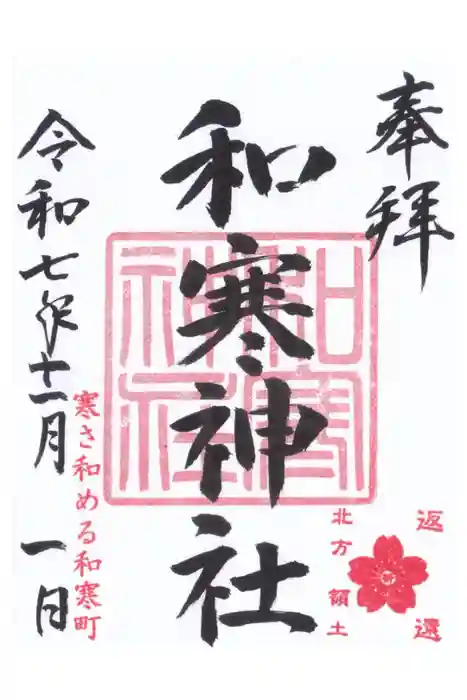 奉拝
返還
北方領土
和寒神社
和寒神社
寒さ和める和寒町
令和七年十一月一日